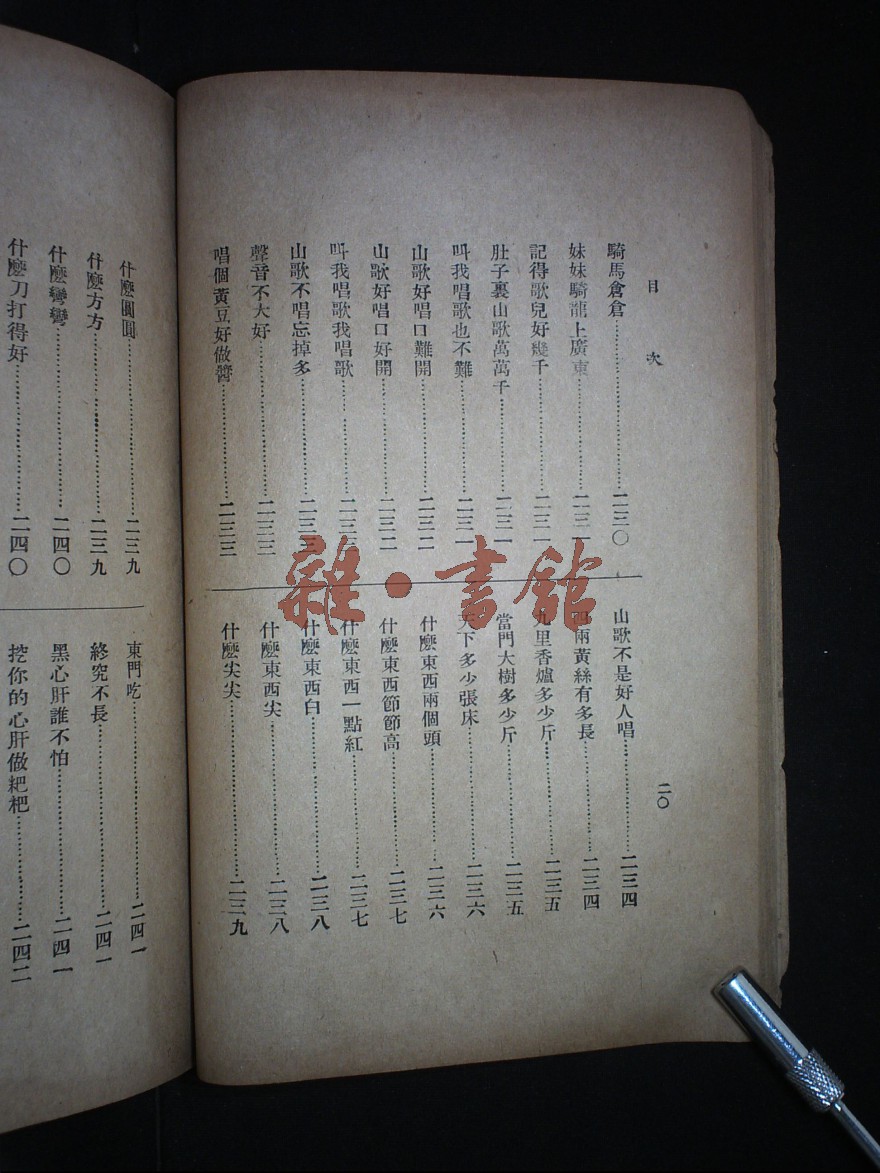 目次
二〇
騎馬倉倉……二三〇
妹妹騎龍上廣東……二三一
記得歌兒好幾千……二三一
肚子裏山歌萬萬千……二三一
叫我唱歌也不難……二三一
山歌好唱口難開……二三二
山歌好唱口好開……二三二
叫我唱歌我唱歌……二三
山歌不唱忘掉多……二三三
聲音不大好……二三三
唱個黃豆好做醬……二三三
山歌不是好人唱……二三四
四兩黃絲有多長……二三四
九里香爐多少斤……二三五
當門大樹多少斤……二三五
天下多少張床……二三六
什麽東西兩個頭……二三六
什麽東西節節高……二三七
什麽東西一點紅……二三七
什麽東西白……二三八
什麽東西尖……二三八
什麽尖尖……二三九
什麽圓圓……二三九
什麽方方……二三九
什麽彎彎……二四〇
什麽刀打得好……二四〇
東門吃……二四一
終究不長……二四一
黑心肝誰不怕……二四一
挖你的心肝做粑粑……二四二
雜·書館